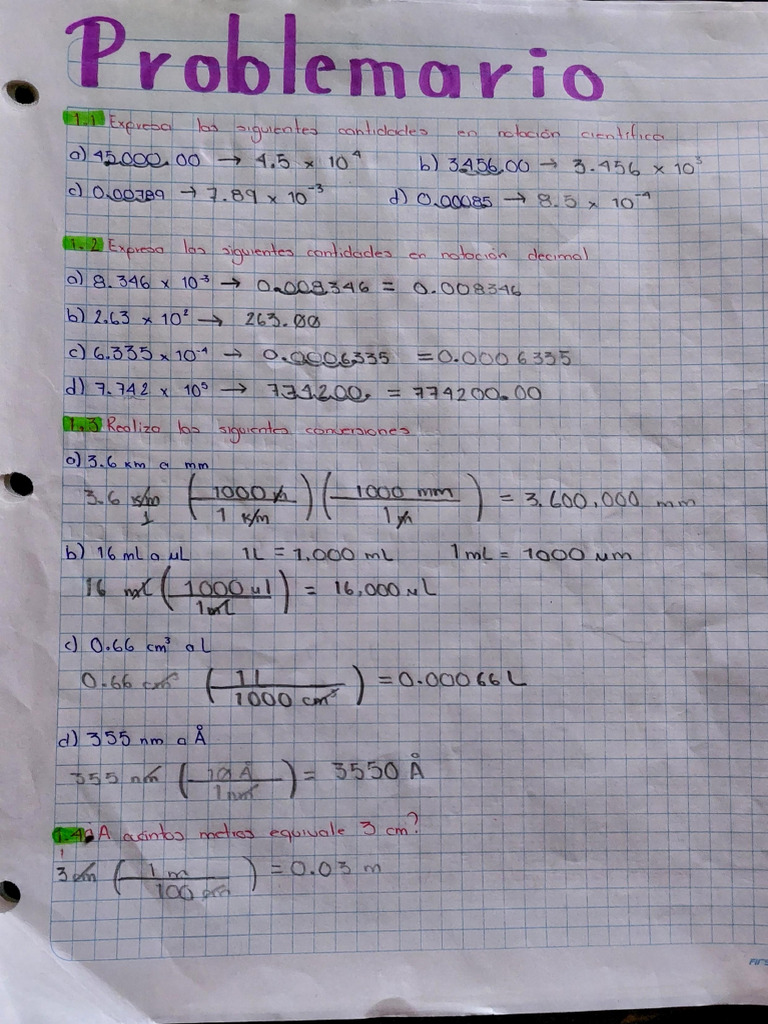 Problemario
1.1 Expresa las siguientes cantidades en notación científica
a) 45000.00 → 4.5 x 10⁴ b) 3456.00 → 3.456 x 10³
c) 0.00789 → 7.89 x 10⁻³ d) 0.00085 → 8.5 x 10⁻⁴
1.2 Expresa las siguientes cantidades en notación decimal
a) 8.346 x 10⁻³ → 0.008346 = 0.008346
b) 2.63 x 10² → 263.00
c) 6.335 x 10⁻⁴ → 0.0006335 = 0.0006335
d) 7.742 x 10⁵ → 774200. = 774200.00
1.3 Realiza las siguientes conversiones
a) 3.6 km a mm
3.6 km/1 (1000 m/1 km) (1000 mm/1 m) = 3.600,000 mm
b) 16 mL a µL 1L = 1.000 mL 1mL = 1000 µm
16 ml (1000 µl/1ml) = 16,000 µL
c) 0.66 cm³ a L
0.66 cm³ (1 L/1000 cm³) = 0.00066 L
d) 355 nm a Å
355 nm (10 Å/1nm) = 3550 Å
1.4 ¿A cuántos metros equivale 3 cm?
3 cm (1 m/100 cm) = 0.03 m